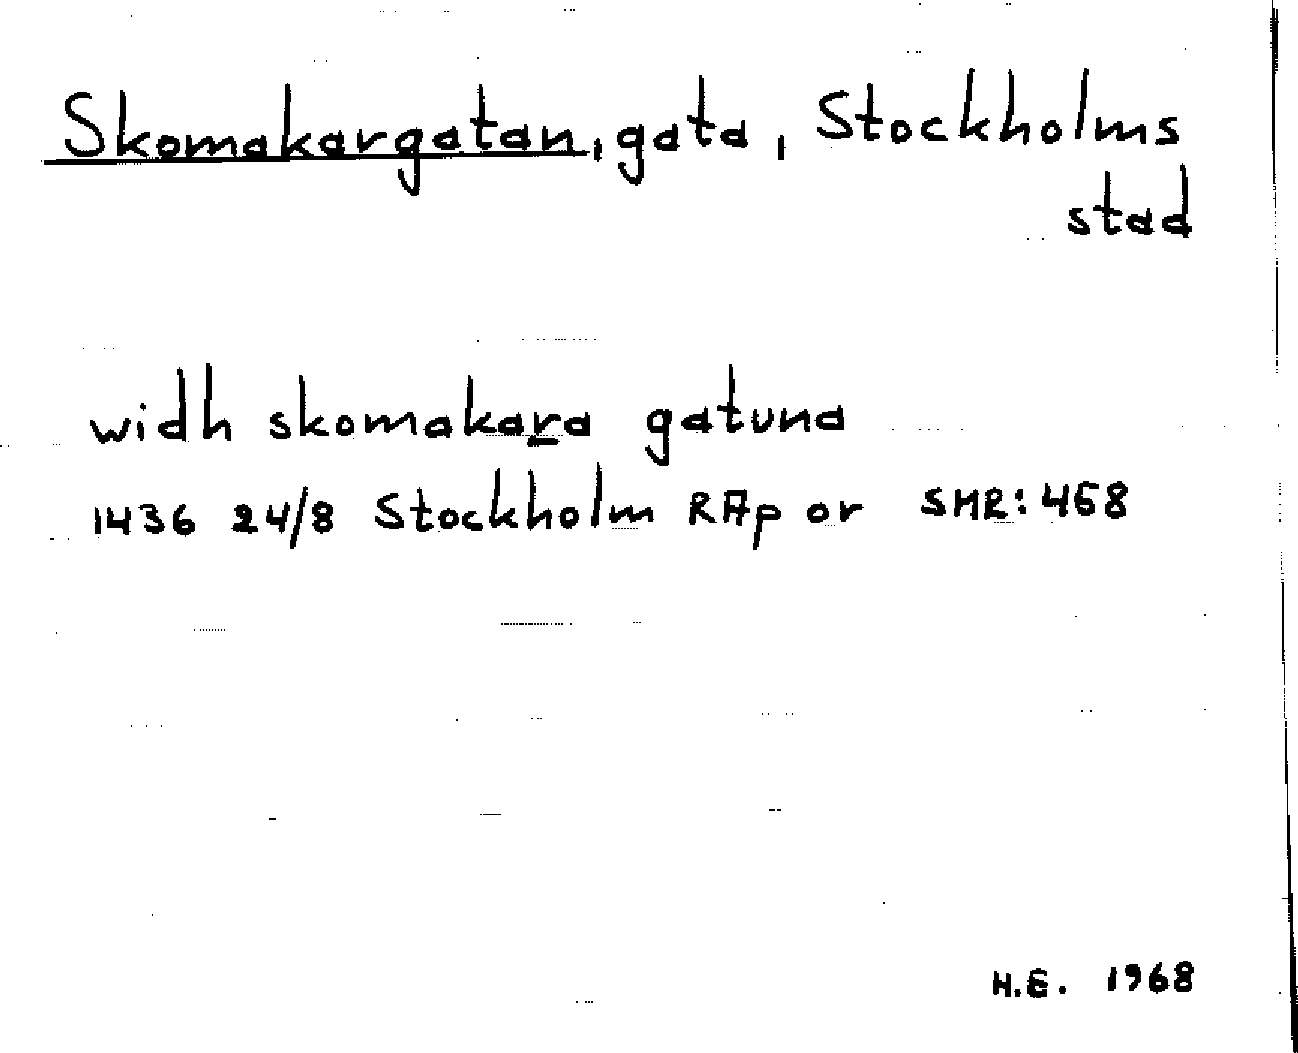 Skomakargatan, gata, Stockholms
stad
widh skomakara gatuna
1436 24/8 Stockholm RAp or SMR: 468
H.E. 1968